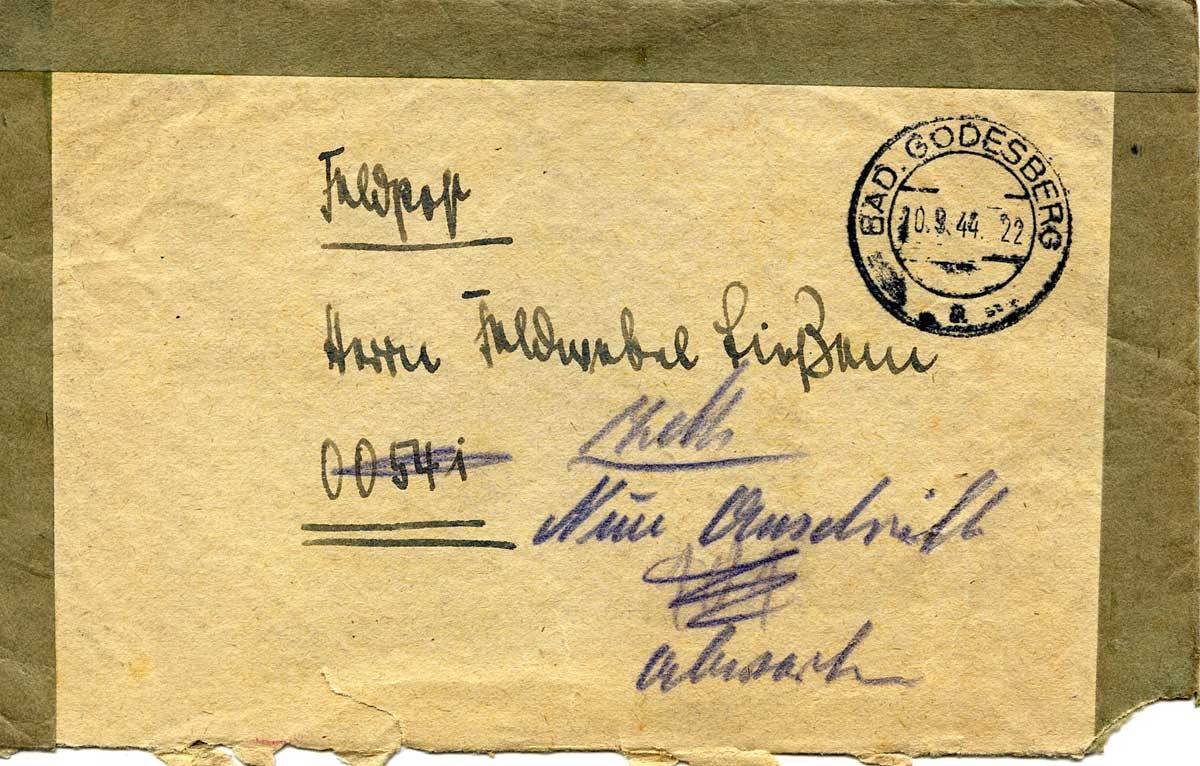 Feldpost
BAD. GODESBERG
44. 22
a
Herrn Feldwebel Ließem
00541
Neue Anschrift
abwarten